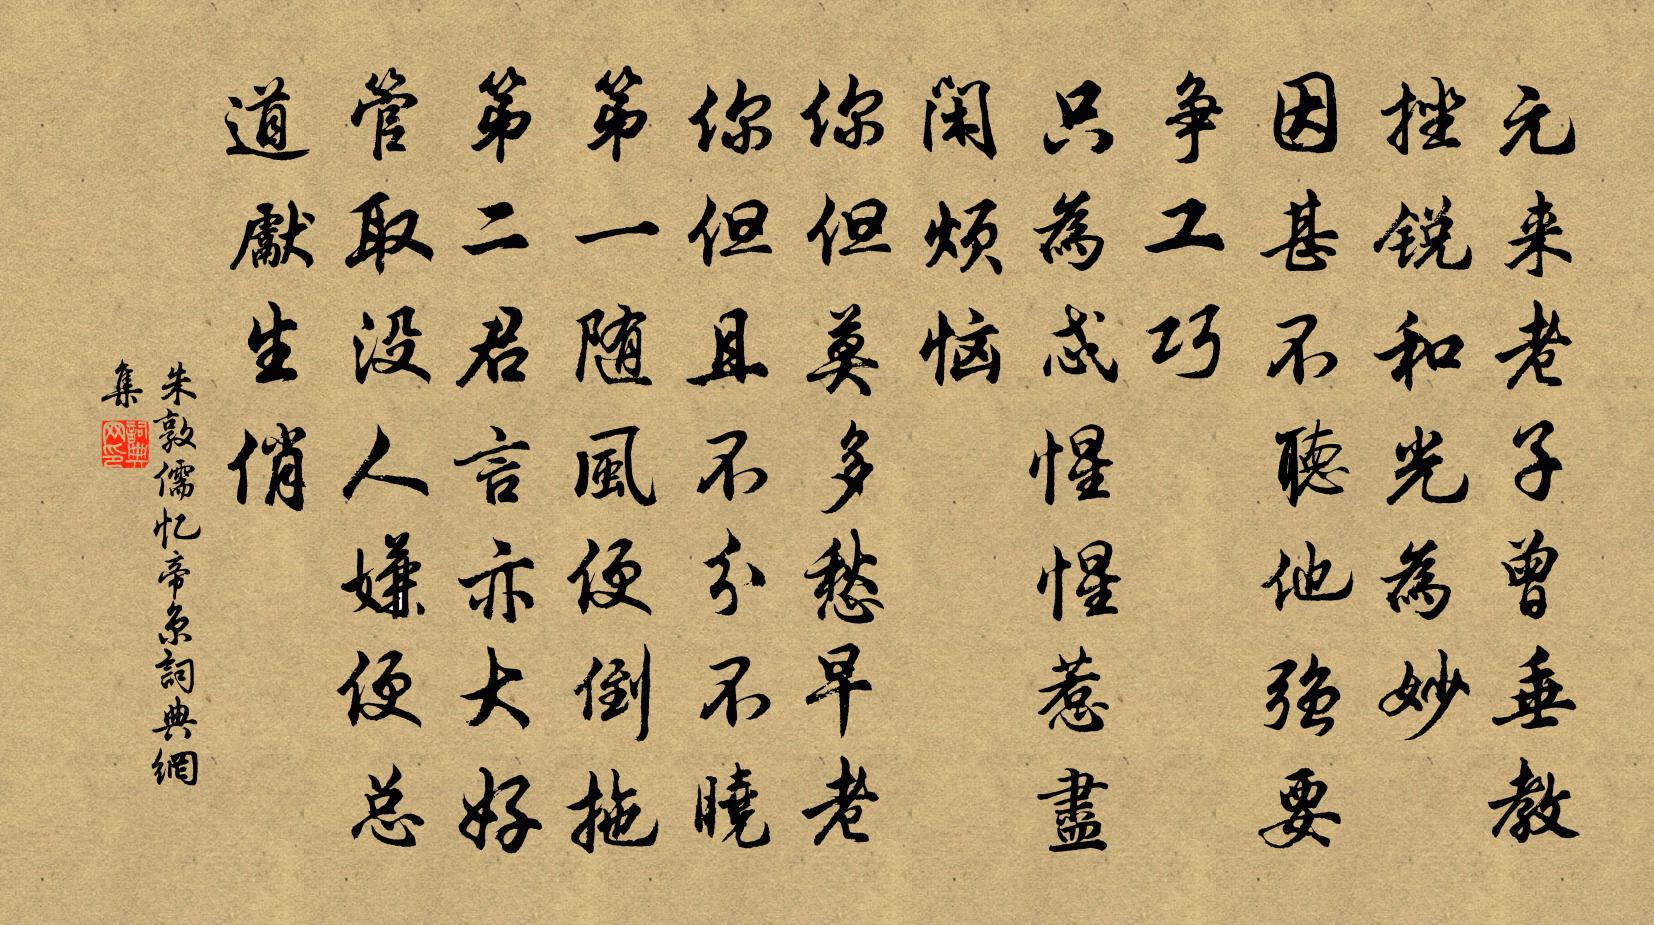 元来老子曾垂教
挫锐和光為妙
因甚不聽他强要
争工巧
只為忒惺惺惹盡
闲烦恼
你但莫多愁早老
你但且不分不曉
第一随風便倒拖
第二君言亦大好
管取没人嫌便总
道獻生俏
朱敦儒忆帝京詞典網
集
詞典網印